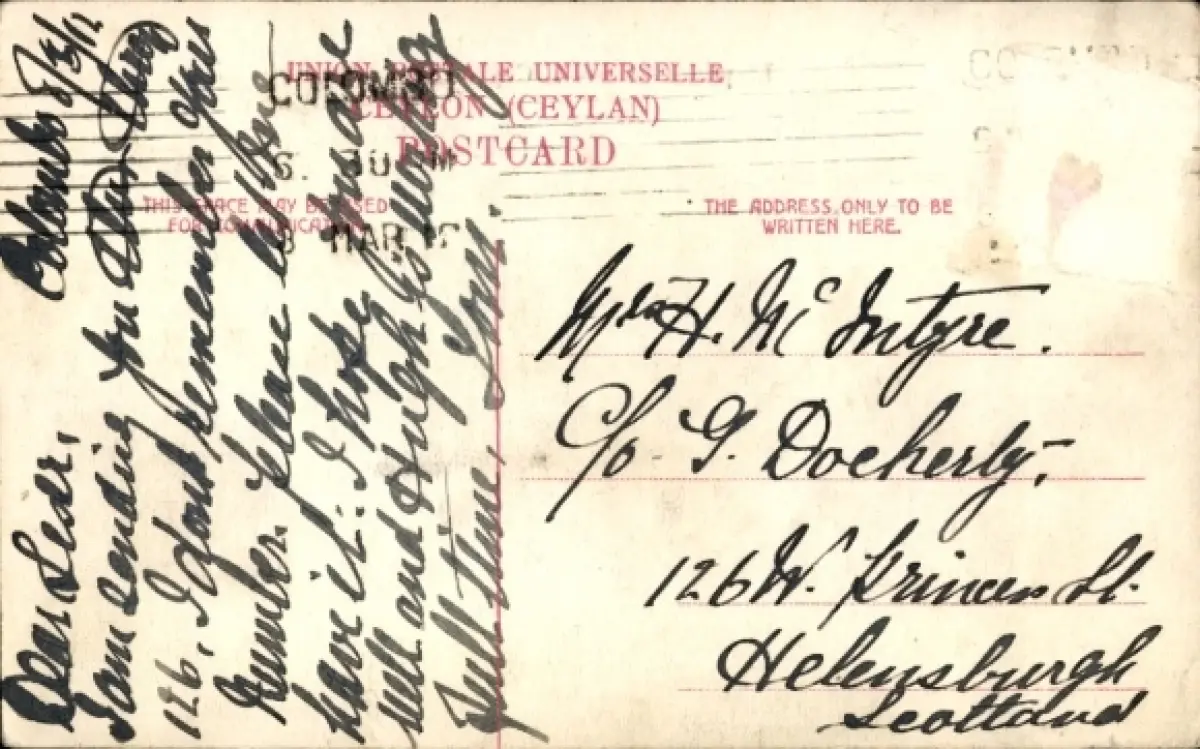 UNION POSTALE UNIVERSELLE
CEYLON (CEYLAN)
POSTCARD
THIS SPACE MAY BE USED
FOR COMMUNICATION
THE ADDRESS ONLY TO BE
WRITTEN HERE.
COLOMBO
8 MAR
Colombo 8/3/12
Dear
I am sending you
126. I dont remember your
number. Please let me
have it. I hope you are
well and Hugh is working
full time.
Mrs H. McIntyre.
C/o G. Docherty,
126 W. Princes St.
Helensburgh
Scotland